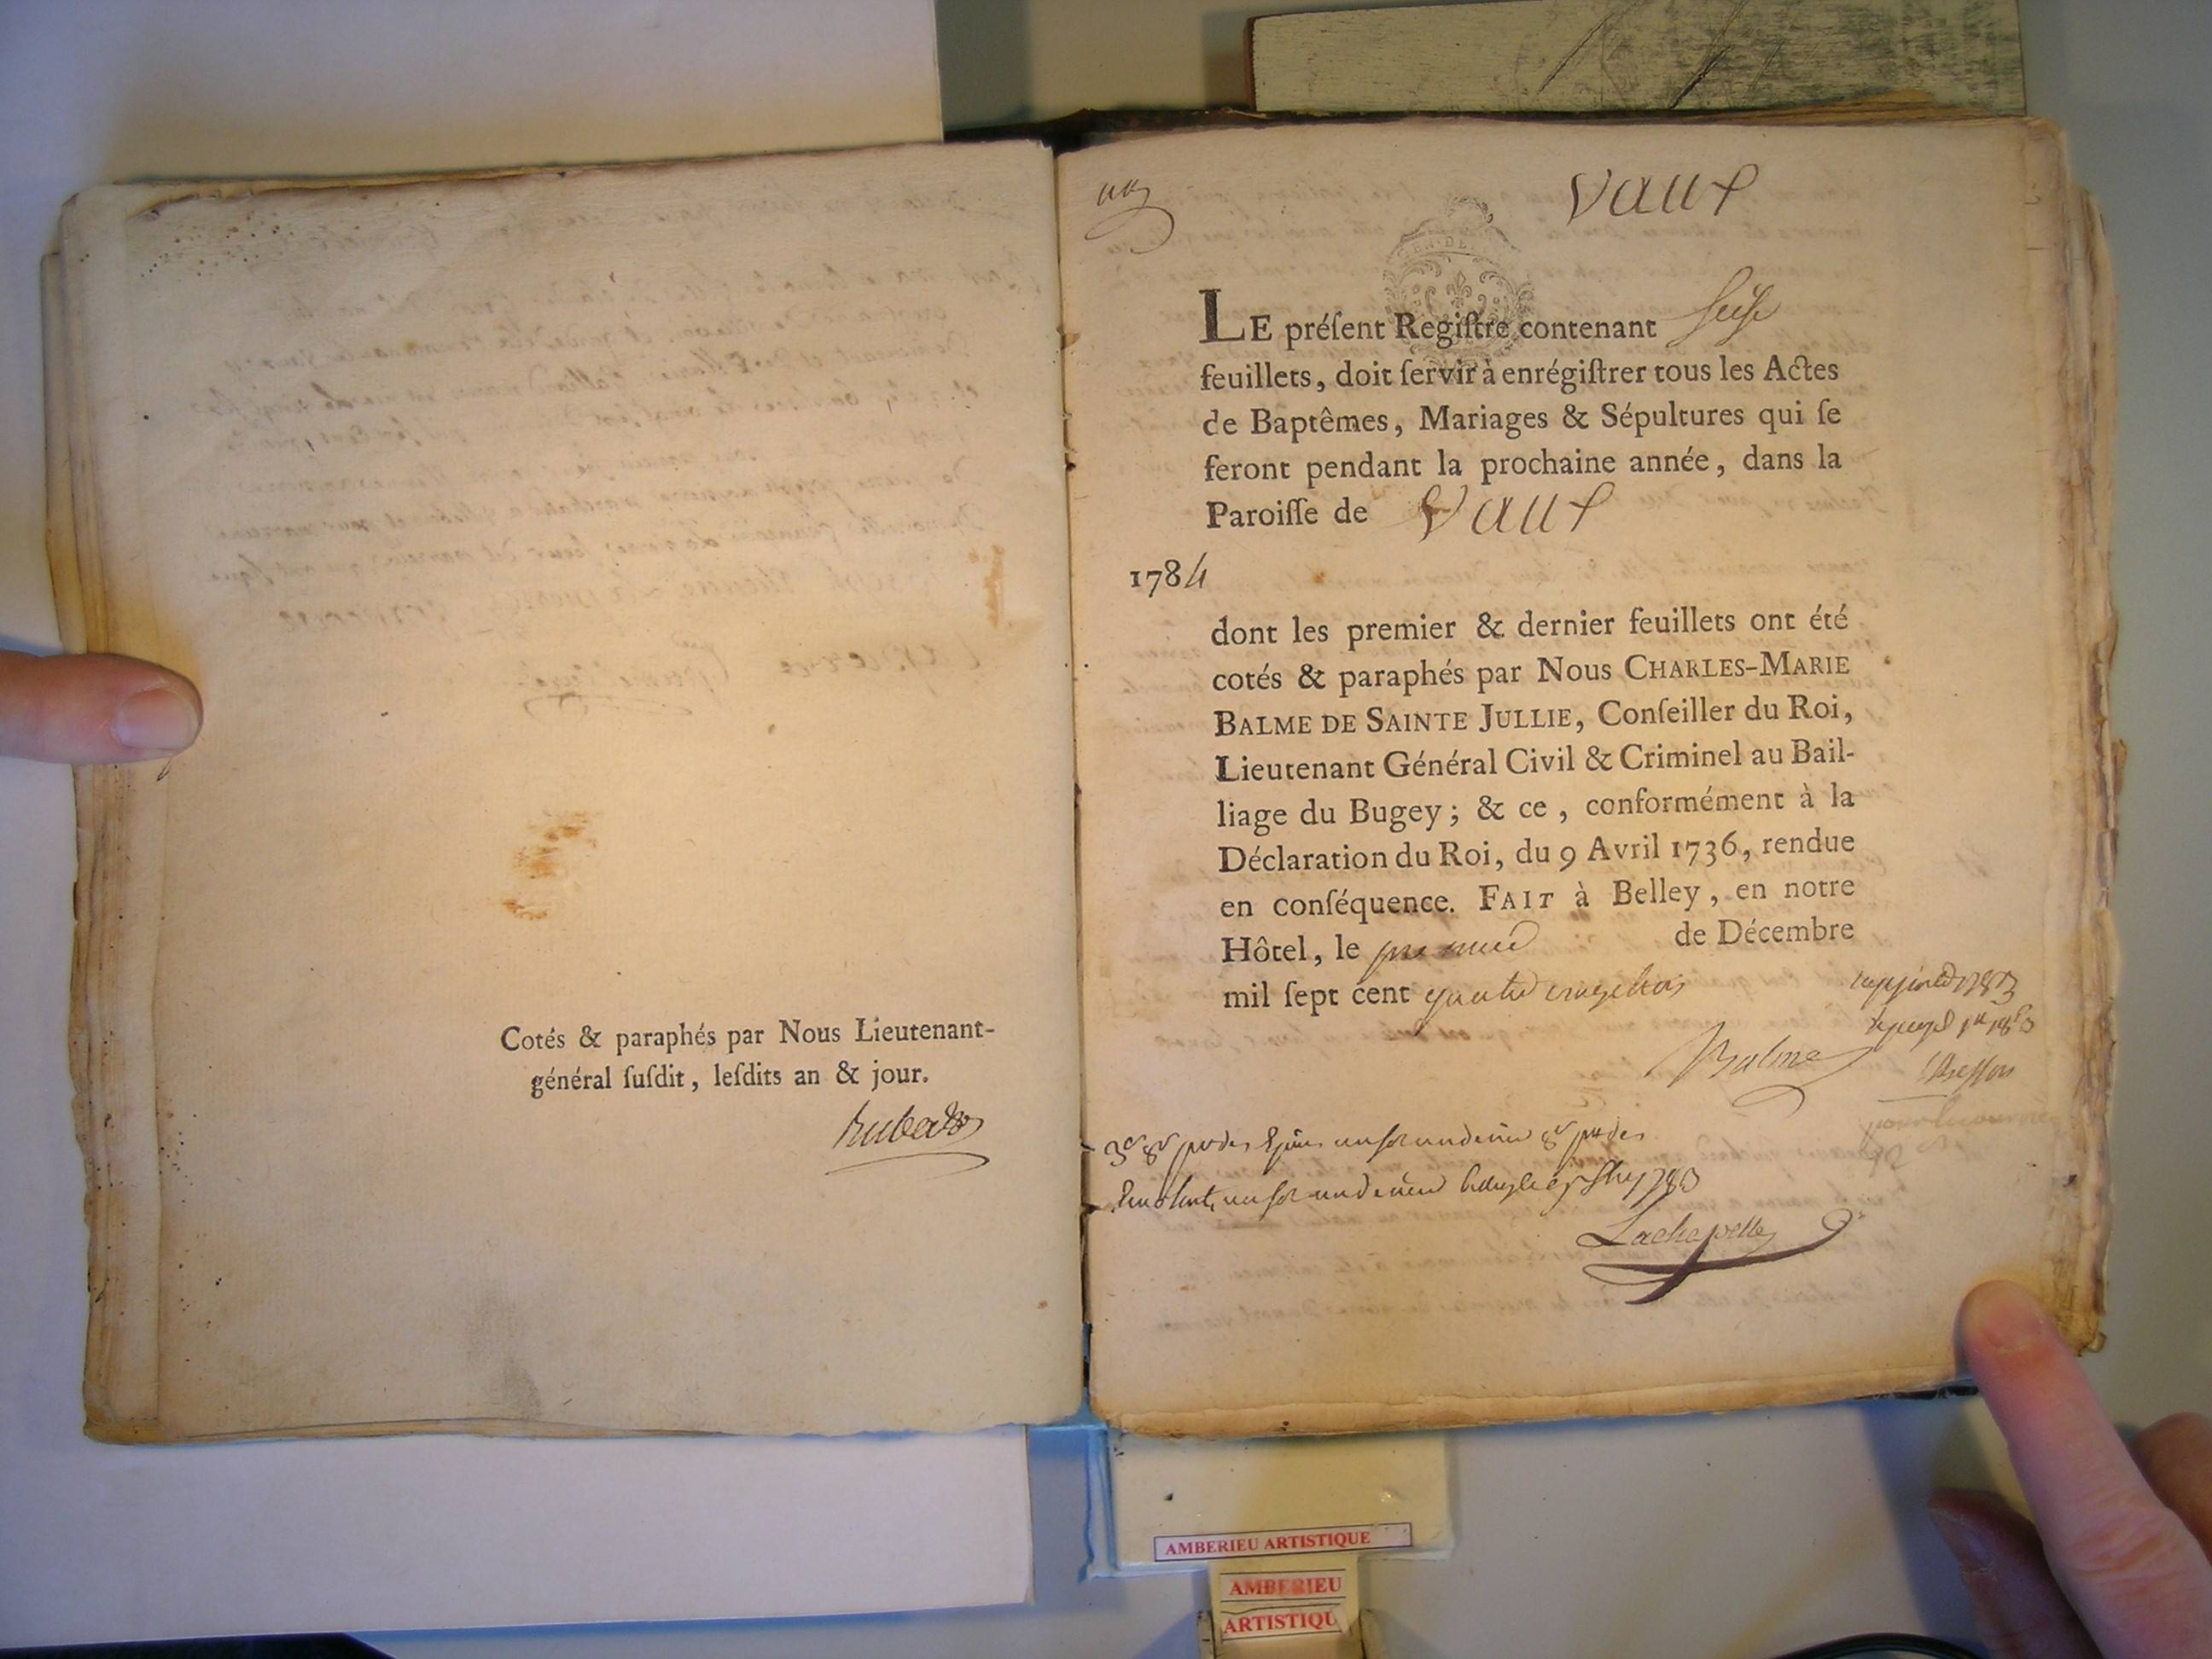 Cotés & paraphés par Nous Lieutenant-
général suſdit, leſdits an & jour.
vaux
LE préſent Regiſtre contenant
feuillets, doit ſervir à enrégiſtrer tous les Actes
de Baptêmes, Mariages & Sépultures qui ſe
feront pendant la prochaine année, dans la
Paroiſſe de vaux
1784
dont les premier & dernier feuillets ont été
cotés & paraphés par Nous CHARLES-MARIE
BALME DE SAINTE JULLIE, Conſeiller du Roi,
Lieutenant Général Civil & Criminel au Bail-
liage du Bugey; & ce, conformément à la
Déclaration du Roi, du 9 Avril 1736, rendue
en conſéquence. FAIT à Belley, en notre
Hôtel, le premier de Décembre
mil ſept cent quatre vingt trois
Balme
Lachapelle
AMBERIEU ARTISTIQUE
AMBERIEU
ARTISTIQU